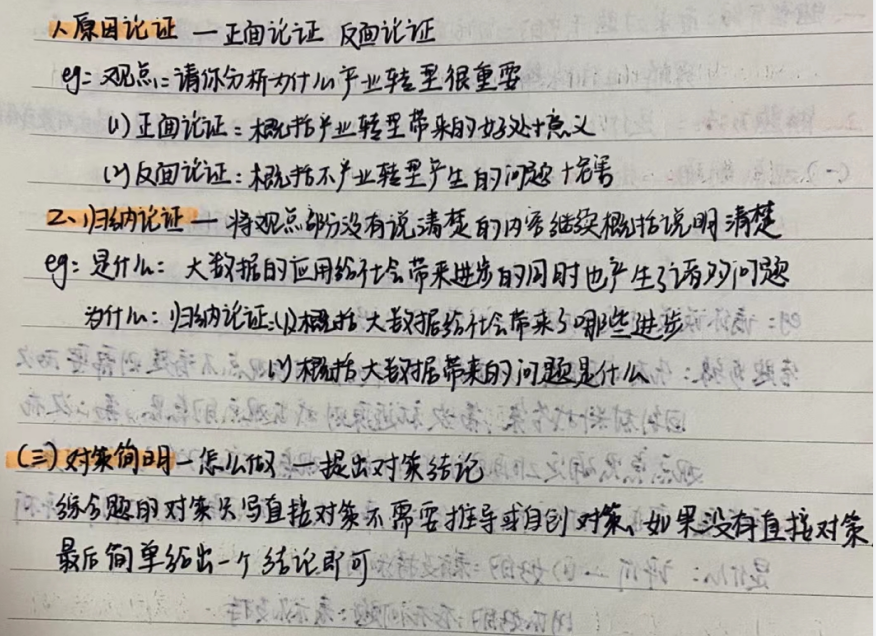 1、原因论证 — 正面论证 反面论证
eg: 观点: 请你分析为什么产业转型很重要
(1) 正面论证: 概括产业转型带来的好处+意义
(2) 反面论证: 概括不产业转型产生的问题+危害
2、归纳论证 — 将观点部分没有说清楚的内容继续概括说明清楚
eg: 是什么: 大数据的应用给社会带来进步的同时也产生了诸多问题
为什么: 归纳论证: (1) 概括大数据给社会带来了哪些进步
(2) 概括大数据带来的问题是什么
(三) 对策简明 — 怎么做 — 提出对策结论
综合题的对策只写直接对策不需要推导或自创对策、如果没有直接对策
最后简单给出一个结论即可